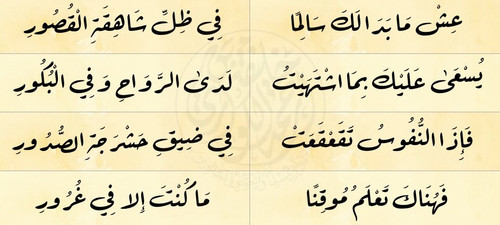 عِشْ مَا بَدَا لَكَ سَالِمًا فِي ظِلِّ شَاهِقَةِ الْقُصُورِ
يُسْعَىٰ عَلَيْكَ بِمَا اشْتَهَيْتُ لَدَىٰ الرَّوَاحِ وَفِي الْبُكُورِ
فَإِذَا النُّفُوسُ تَقَعْقَعَتْ فِي ضِيقِ حَشْرَجَةِ الصُّدُورِ
فَهُنَاكَ تَعْلَمُ مُوقِنًا مَا كُنْتَ إِلا فِي غُرُورِ